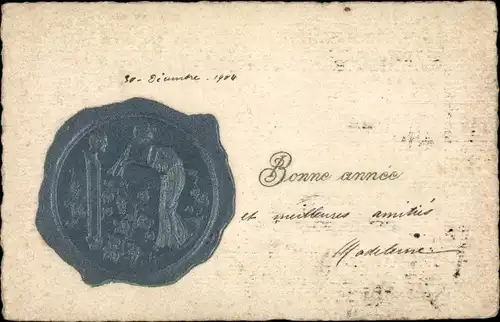 30 - Décembre - 1904
Bonne année
et meilleures amitiés
Madeleine